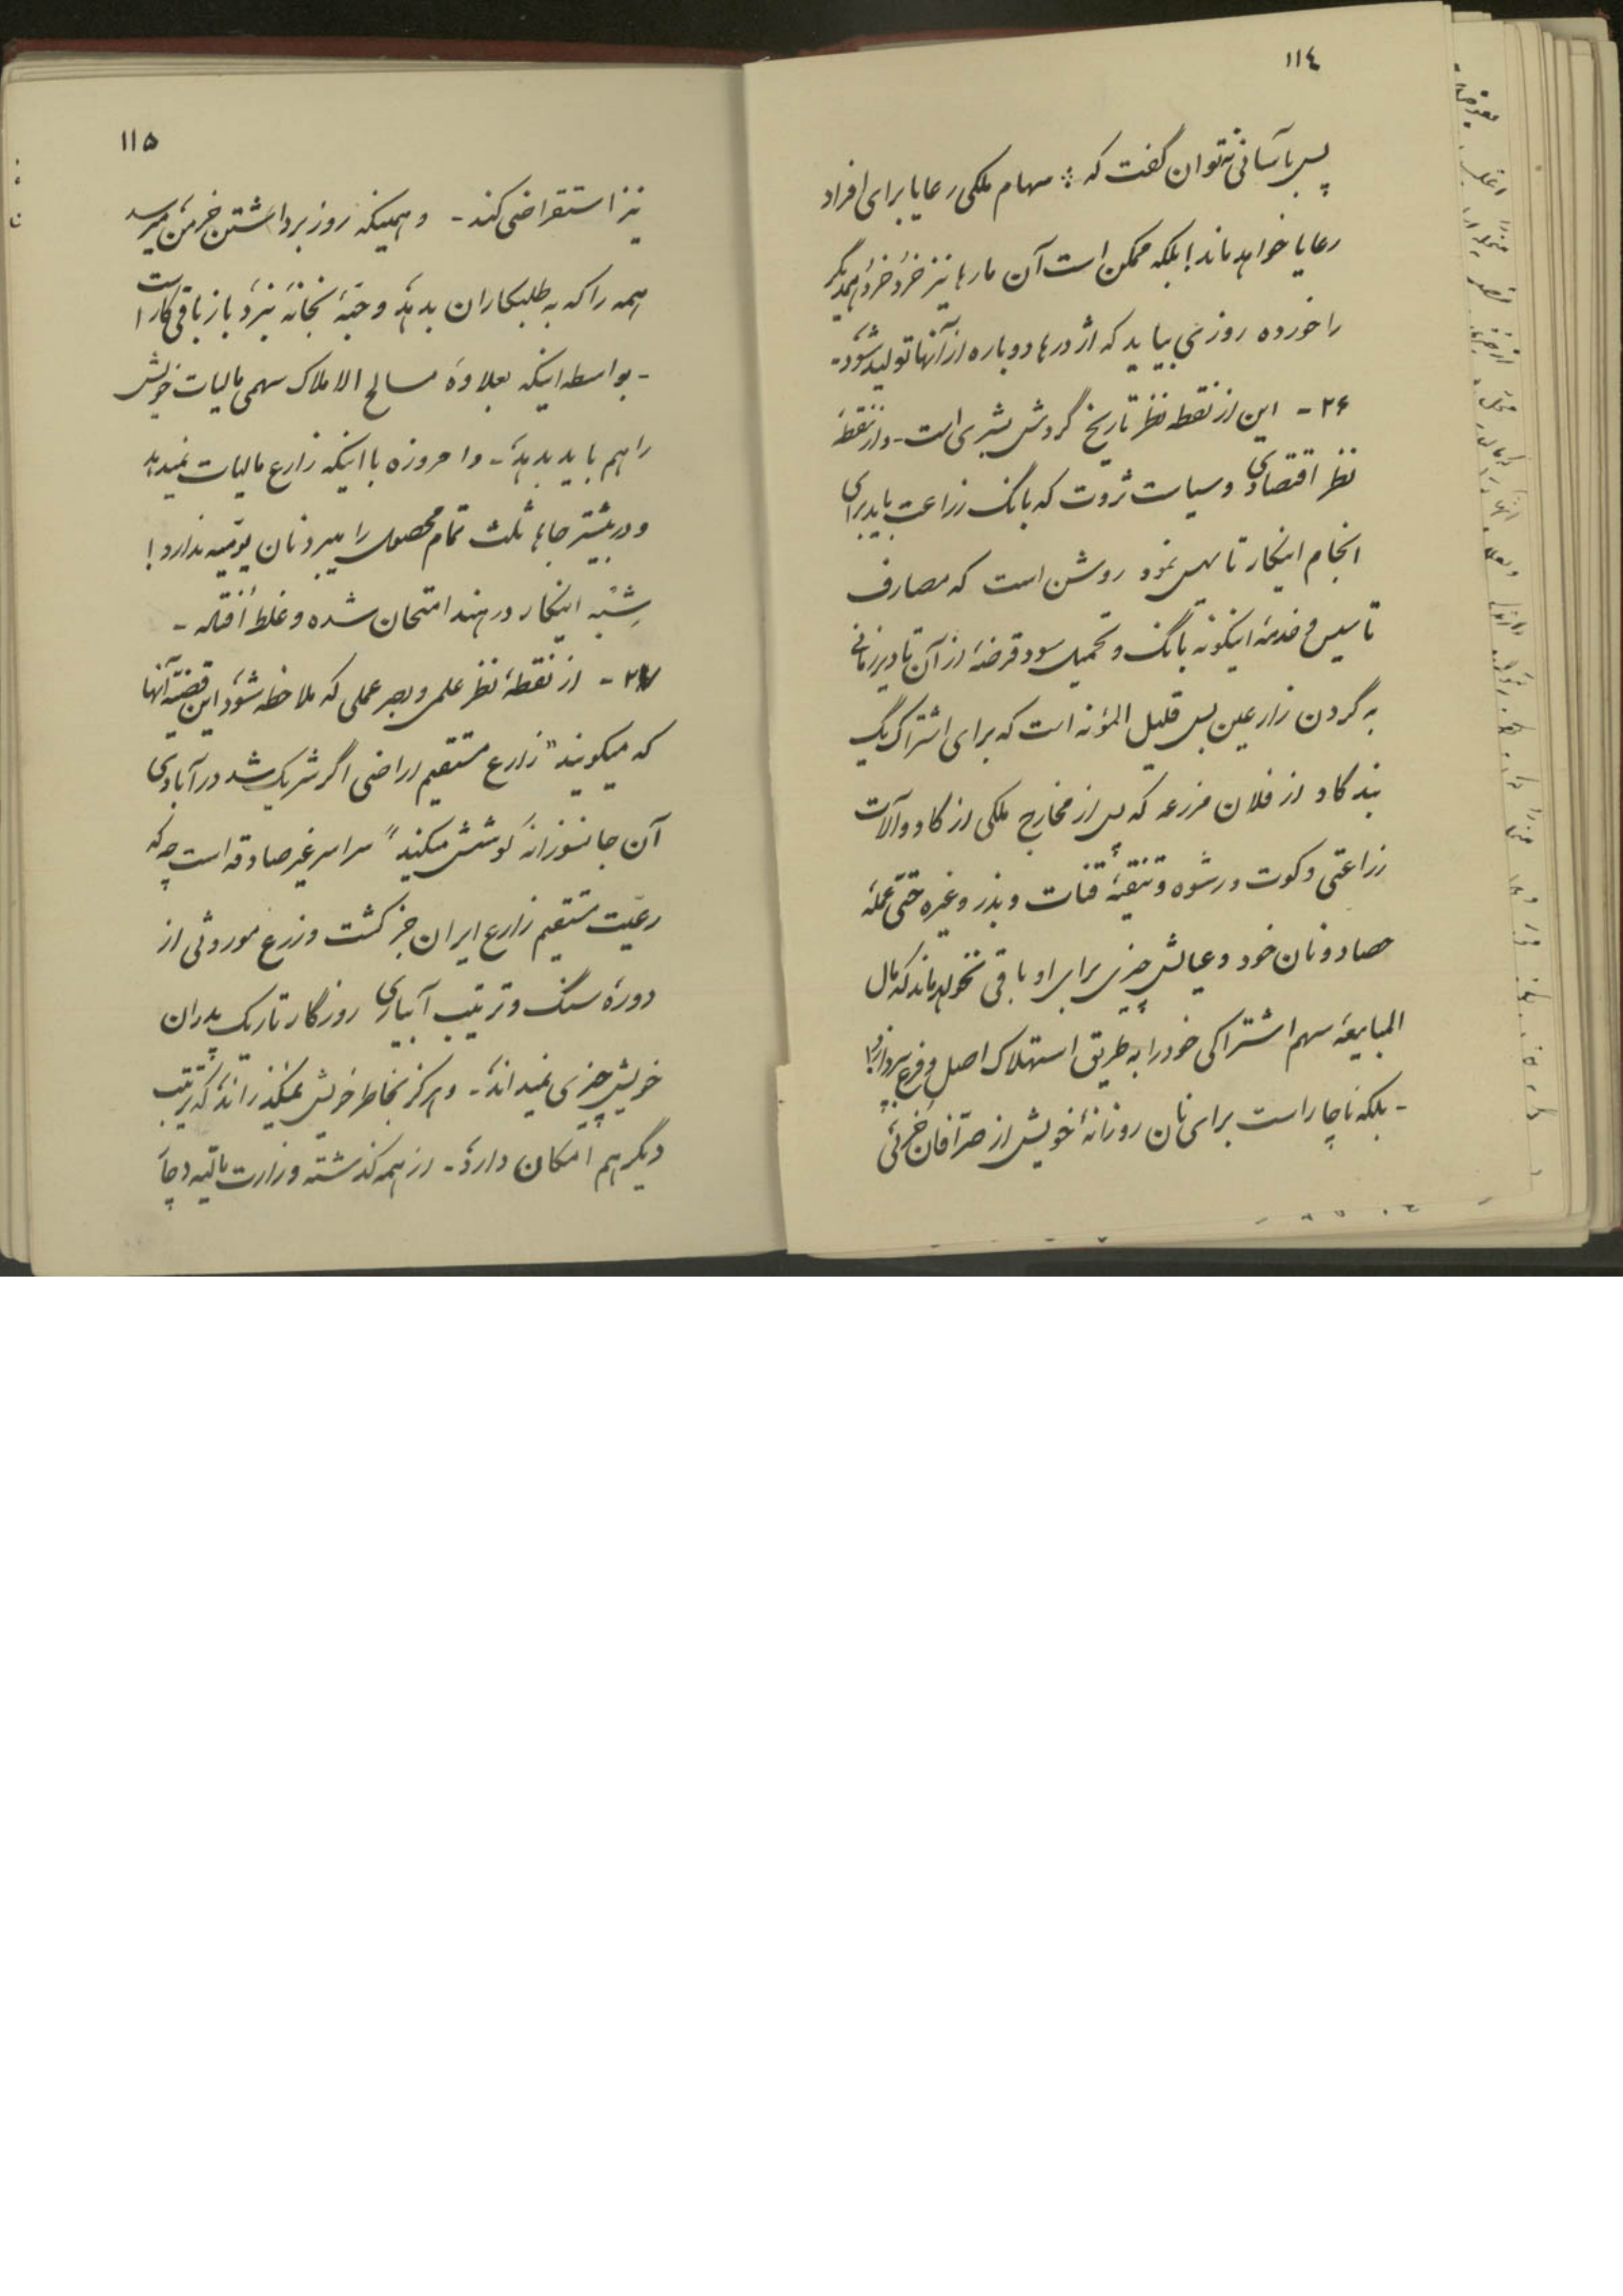 ١١٤
پس بآسانی نه‌توان گفت که سهام ملکی رعایا برای افراد
رعایا خواهد ماند! بلکه ممکن است آن مارها نیز خُرد خُرد همدیگر
را خورده روزی بیاید که اژدرها دوباره از آنها تولید شود -
٢۶ - این از نقطه نظر تاریخ گردش بشری است - و از نقطهٔ
نظر اقتصادی و سیاست ثروت که بانک زراعت باید برای
انجام اینکار تاسیس نمود روشن است که مصارف
تاسیس و خدمهٔ اینگونه بانک و تحمیل سود قرضهٔ از آن تا دیر زمانی
به گردن زارعین بس قلیل المؤنه است که برای اشتراک یک
بند گاو از فلان مزرعه که پس از مخارج ملکی از گاو و آلات
زراعتی و کوت و رشوه و تنقیهٔ قنات و بذر و غیره حتّی عملهٔ
حصاد و نان خود و عیالش چیزی برای او باقی نخواهد ماند که مال
المبایعهٔ سهم اشتراکی خود را به طریق استهلاک اصل و فرع بپردازد!
- بلکه ناچار است برای نان روزانهٔ خویش از صرّافان جزئی
١١۵
نیز استقراض کند - و همینکه روز برداشتن خرمن میرسد
همه را که به طلبکاران بدهد و حبّهٔ بخانه نبرد باز باقی کار است
- بواسطه اینکه بعلاوهٔ مسالح الاملاک سهمی مالیات خویش
را هم باید بدهد - و امروزه با اینکه زارع مالیات نمیدهد
و در بیشتر جاها ثلث تمام محصول را میبرد نان یومیه ندارد!
شِبْهِ اینکار در هند امتحان شده و غلط اُفتاده -
٢٧ - از نقطهٔ نظر علمی و بصر عملی که ملاحظه شود این قضیّهٔ آنها
که میگویند "زارع مستقیم اراضی اگر شریک شد در آبادی
آن جانسوزانه کوشش میکند" سراسر غیر صادقه است چه که
رعیّت مستقیم زارع ایران جز کشت و زرع موروثی از
دورهٔ سنگ و ترتیب آبیاری روزگار تاریک پدران
خویش چیزی نمیداند - و هرگز بخاطر خویش نمیگذراند که ترتیب
دیگر هم امکان دارد - از همه گذشته وزارت مالیّه دچار